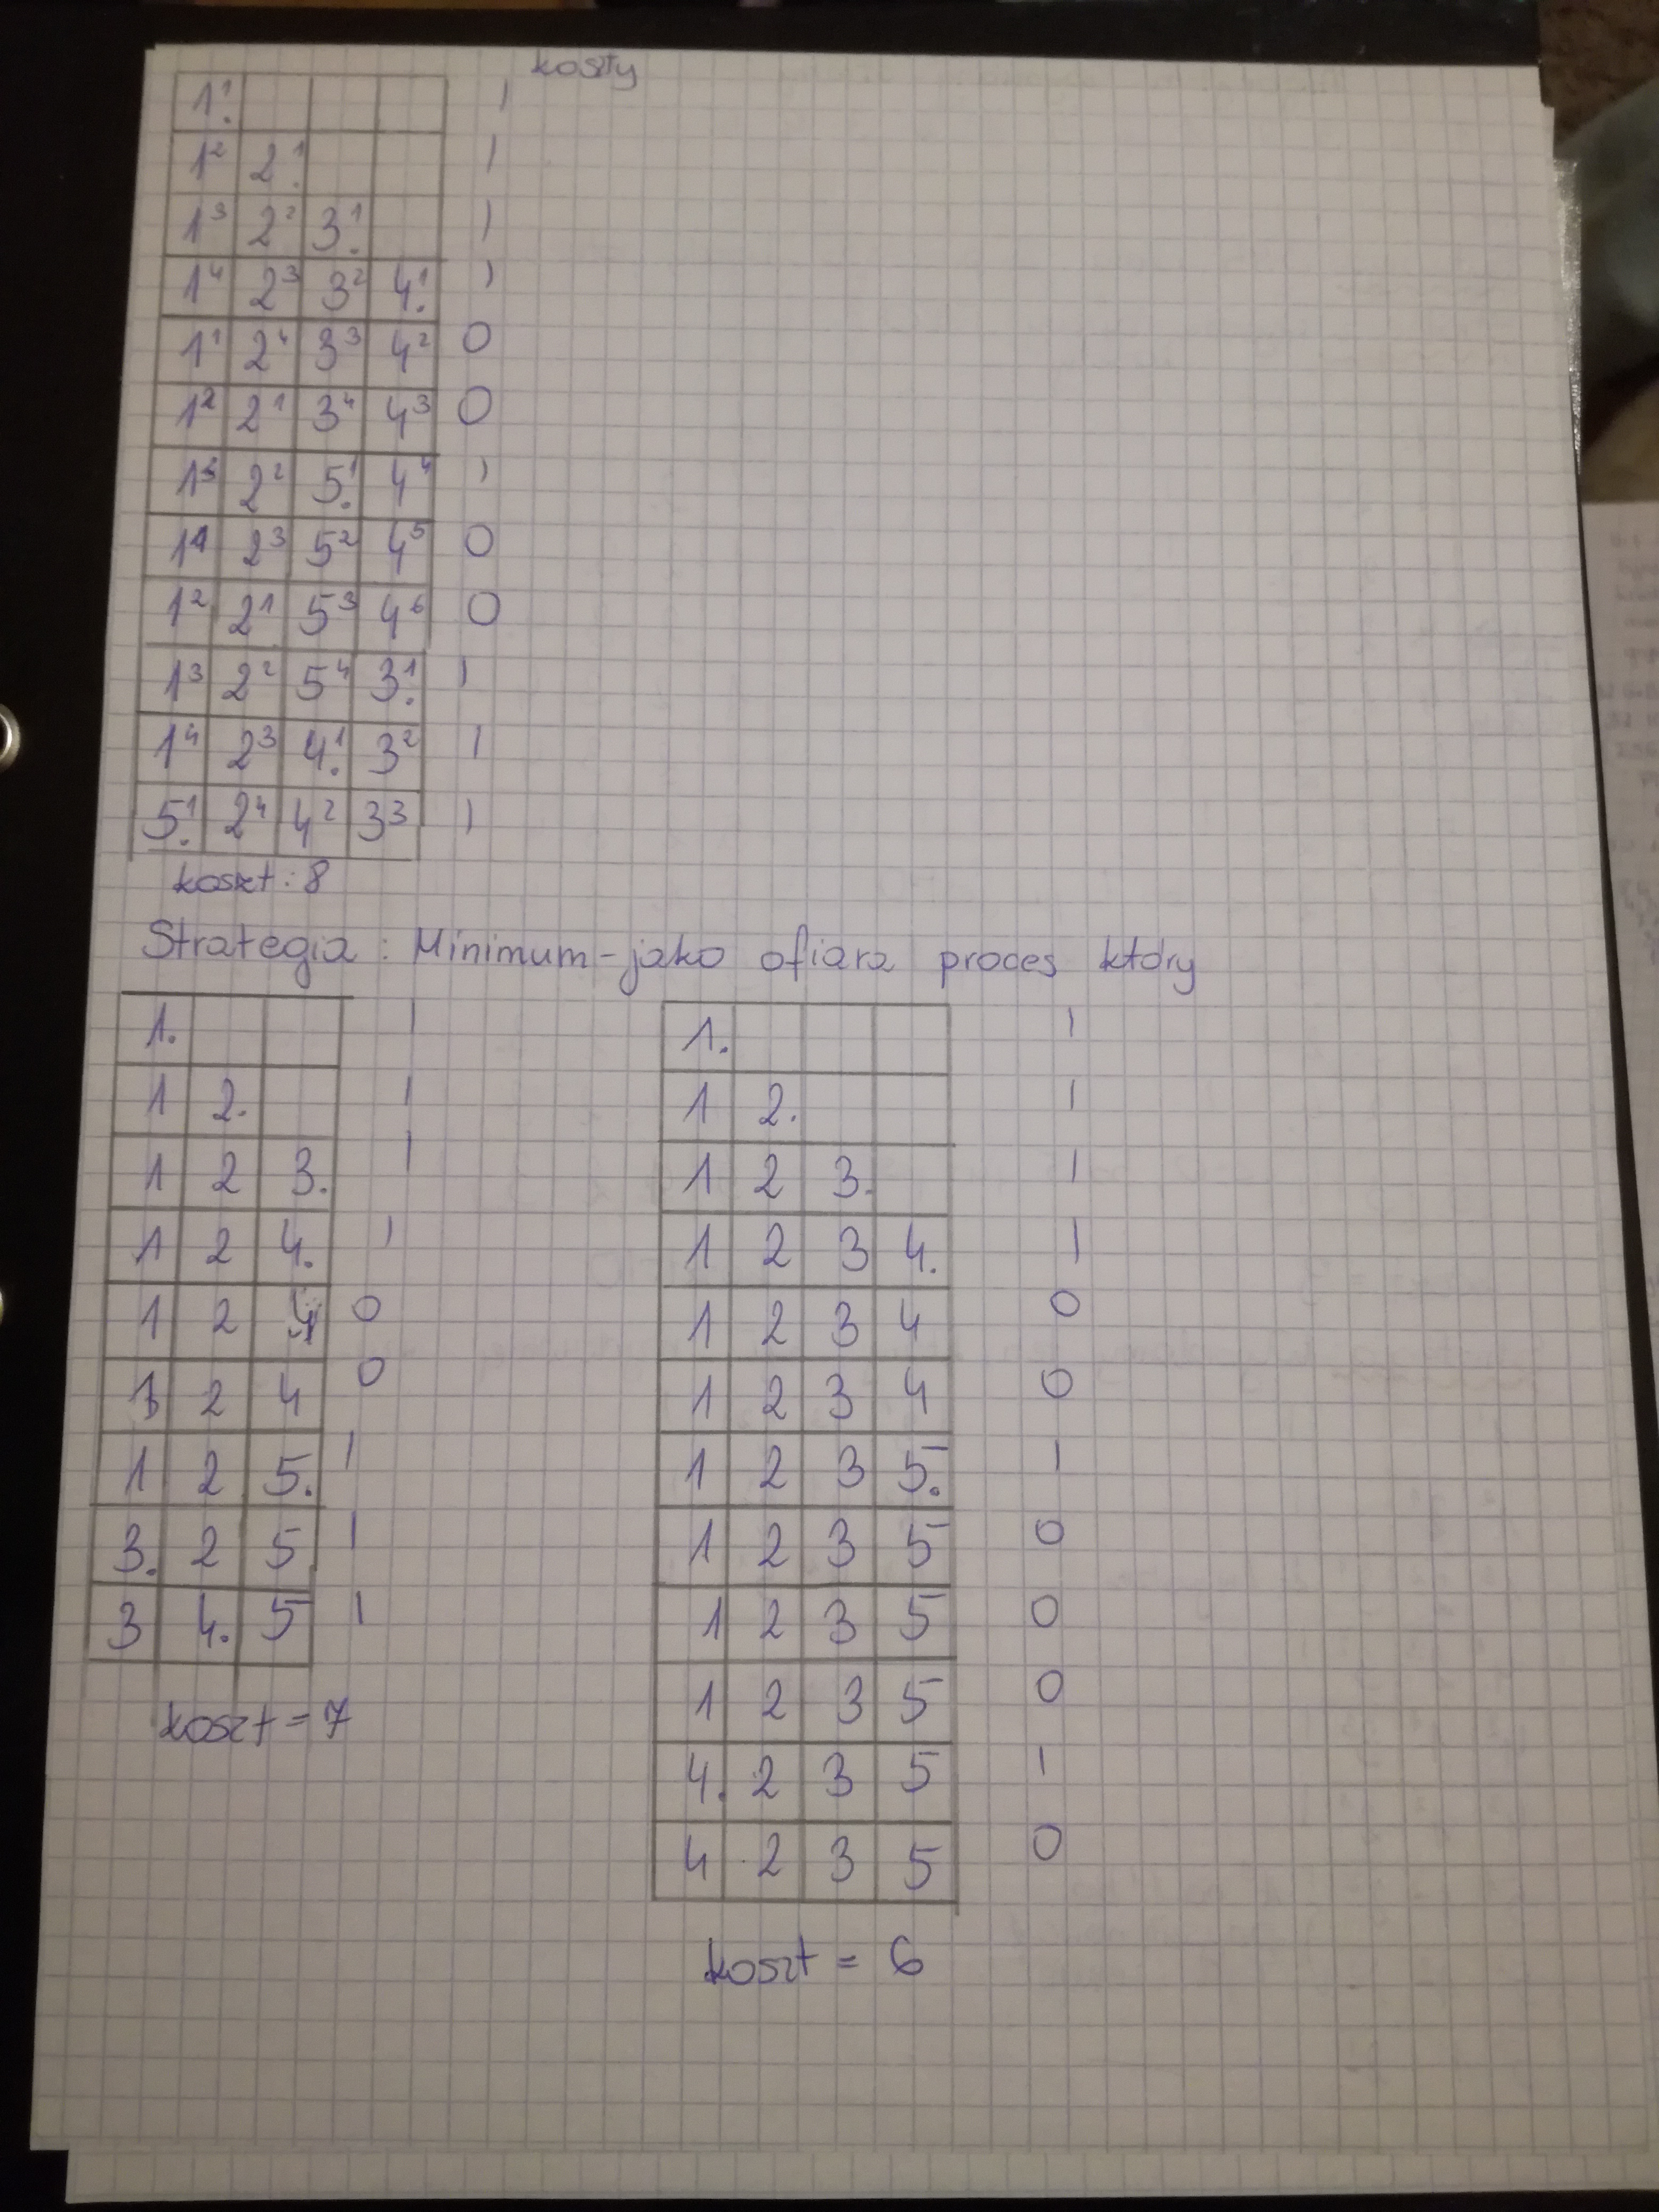 koszty
1.¹ 1
1² 2.¹ 1
1³ 2² 3.¹ 1
1⁴ 2³ 3² 4.¹ 1
1¹ 2⁴ 3³ 4² 0
1² 2¹ 3⁴ 4³ 0
1³ 2² 5.¹ 4⁴ 1
1⁴ 2³ 5² 4⁵ 0
1² 2¹ 5³ 4⁶ 0
1³ 2² 5⁴ 3.¹ 1
1⁴ 2³ 4.¹ 3² 1
5.¹ 2⁴ 4² 3³ 1
koszt: 8
Strategia: Minimum - jako ofiara proces który
1. 1
1 2. 1
1 2 3. 1
1 2 4. 1
1 2 4 0
1 2 4 0
1 2 5. 1
3. 2 5 1
3 4. 5 1
koszt = 7
1. 1
1 2. 1
1 2 3. 1
1 2 3 4. 1
1 2 3 4 0
1 2 3 4 0
1 2 3 5. 1
1 2 3 5 0
1 2 3 5 0
1 2 3 5 0
4. 2 3 5 1
4 2 3 5 0
koszt = 6